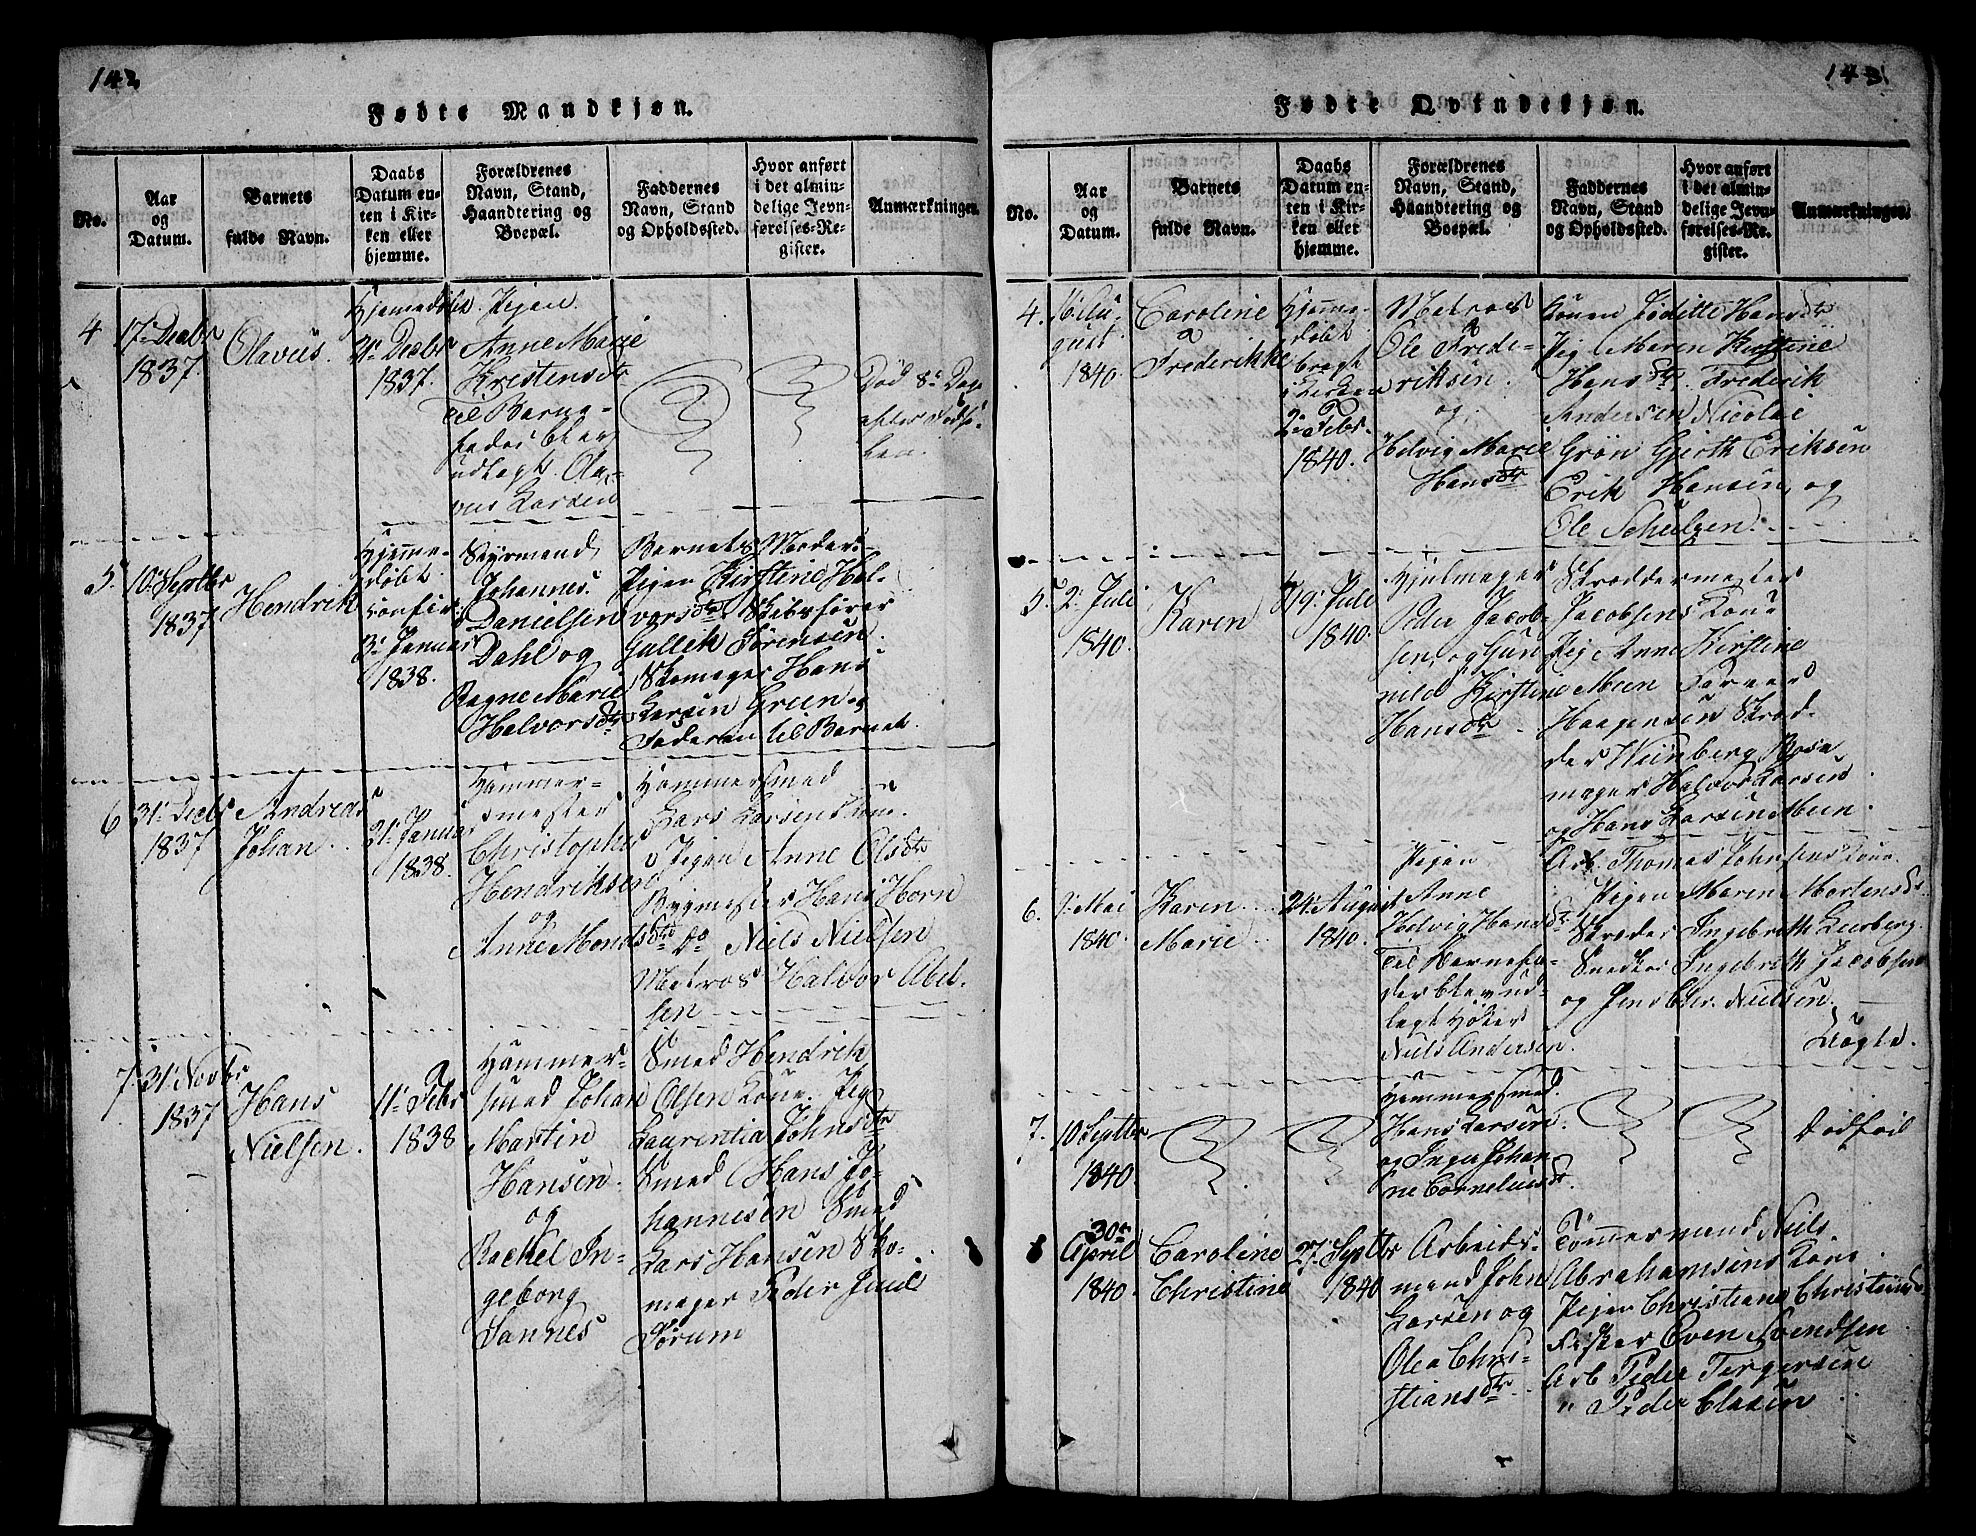 142
Fødte Mandkjøn.
No.
Aar
og
Datum.
Barnets
fulde Navn.
Daabs
Datum en-
ten i Kir-
ken eller
hjemme.
Forældrenes
Navn, Stand,
Haandtering og
Boepæl.
Faddernes
Navn, Stand
og Opholdssted.
Hvor anført
i det almin-
delige Jevn-
førelses-Re-
gister.
Anmærkninger.
4
17 Decbr
1837.
Olavus.
Hjemedøbt
21 Decbr
1837.
Pigen
Anne Marie
Kristensdtr
til Barne-
fader blev
udlagt Ola-
vus Larsen
Død 8 Dage
efter Fødse-
len.
5.
10 Septbr
1837
Hendrik
Hjemme-
døbt
confir:
3 Januar
1838.
Styrmand
Johannes
Danielsen
Dahl og
Ragne Marie
Halvorsdtr
Barnets Moder
Pigen Kirstine Hal-
vorsdtr Skibsfører
Gullik Sørensen
Skomager Hans
Larsen Green og
Faderen til Barnet.
6
31 Decbr
1837
Andreas
Johan.
21 Januar
1838.
Hammer-
smester
Christopher
Hendriksen
og
Anne Monsdtr
Hammersmed
Lars Larsens Kone.
Pigen Anne Olsdtr
Bygmester Hans Horn
do Niels Nielsen
Matros Halvor Abel-
sen
7.
31 Novbr
1837
Hans
Nielsen.
11 Febr
1838
Hammer-
smed Johan
Martin
Hansen.
og
Rachel In-
geborg
Hannes
Smed Hendrik
Olsens Kone. Pig
Laurentia Johnsdtr
Smed Hans Jo-
hannesen Smed
Lars Hansen Sko-
mager Peder Juul
Sørum
143.
Fødte Qvindekjøn.
No.
Aar
og
Datum.
Barnets
fulde Navn.
Daabs
Datum en-
ten i Kir-
ken eller
hjemme.
Forældrenes
Navn, Stand,
Haandtering og
Boepæl.
Faddernes
Navn, Stand
og Opholdssted.
Hvor anført
i det almin-
delige Jevn-
førelses-Re-
gister.
Anmærkninger.
4.
gust
1840.
Caroline
Frederikke
Hjemme-
døbt
bragt
i Kirken
2 Febr.
1840.
Matros
Ole Frede-
riksen.
og
Hedvig Marie
Hansdtr
Konen Hansdtr
Pig Maren Kirstine
Hansdtr. Frederik
Andersen Nicolai
Grøn Gjerth Eriksen
Erik Hansen, og
Ole Schulzen.
5.
2 Juli
1840.
Karen
19 Juli
1840.
Hjulmager
Peder Jacob-
sen, og Gun
nild Kirstine
Hansdtr
Skreddermester
Jacobsens Kone
Pig Anne Kirstine
Moen
Haagensen Skred-
der
mager Halvor Larsen
og Hans Larsen Moen.
6.
Mai
1840.
Karen
Marie
24 August
1840.
Pigen
Anne
Hedvig Hansdtr
Til Barnefa-
der blev ud-
lagt
Niels Andersen.
Arb. Thomas Johnsens Kone.
Pigen Maren Mortensdtr
Skreder Ingebreth
Snedker Ingebreth Jacobsen
og Nielsen.
Uægte.
7.
10 Septbr
1840.
Hammersmed
Hans Larsen.
og Inger Johan
ne Corneliusdtr.
Dødfød
8
30
April
1840.
Caroline
Christine
27 Septbr
1840
Arbeids-
mand John
Larsen og
Olea Chri-
stiansdtr
Tømmermand Niels
Abrahamsens Kone.
Pigen Christiane
Fisker Even Svendsen
Arb Peder Tergersen
" Peder Clasen